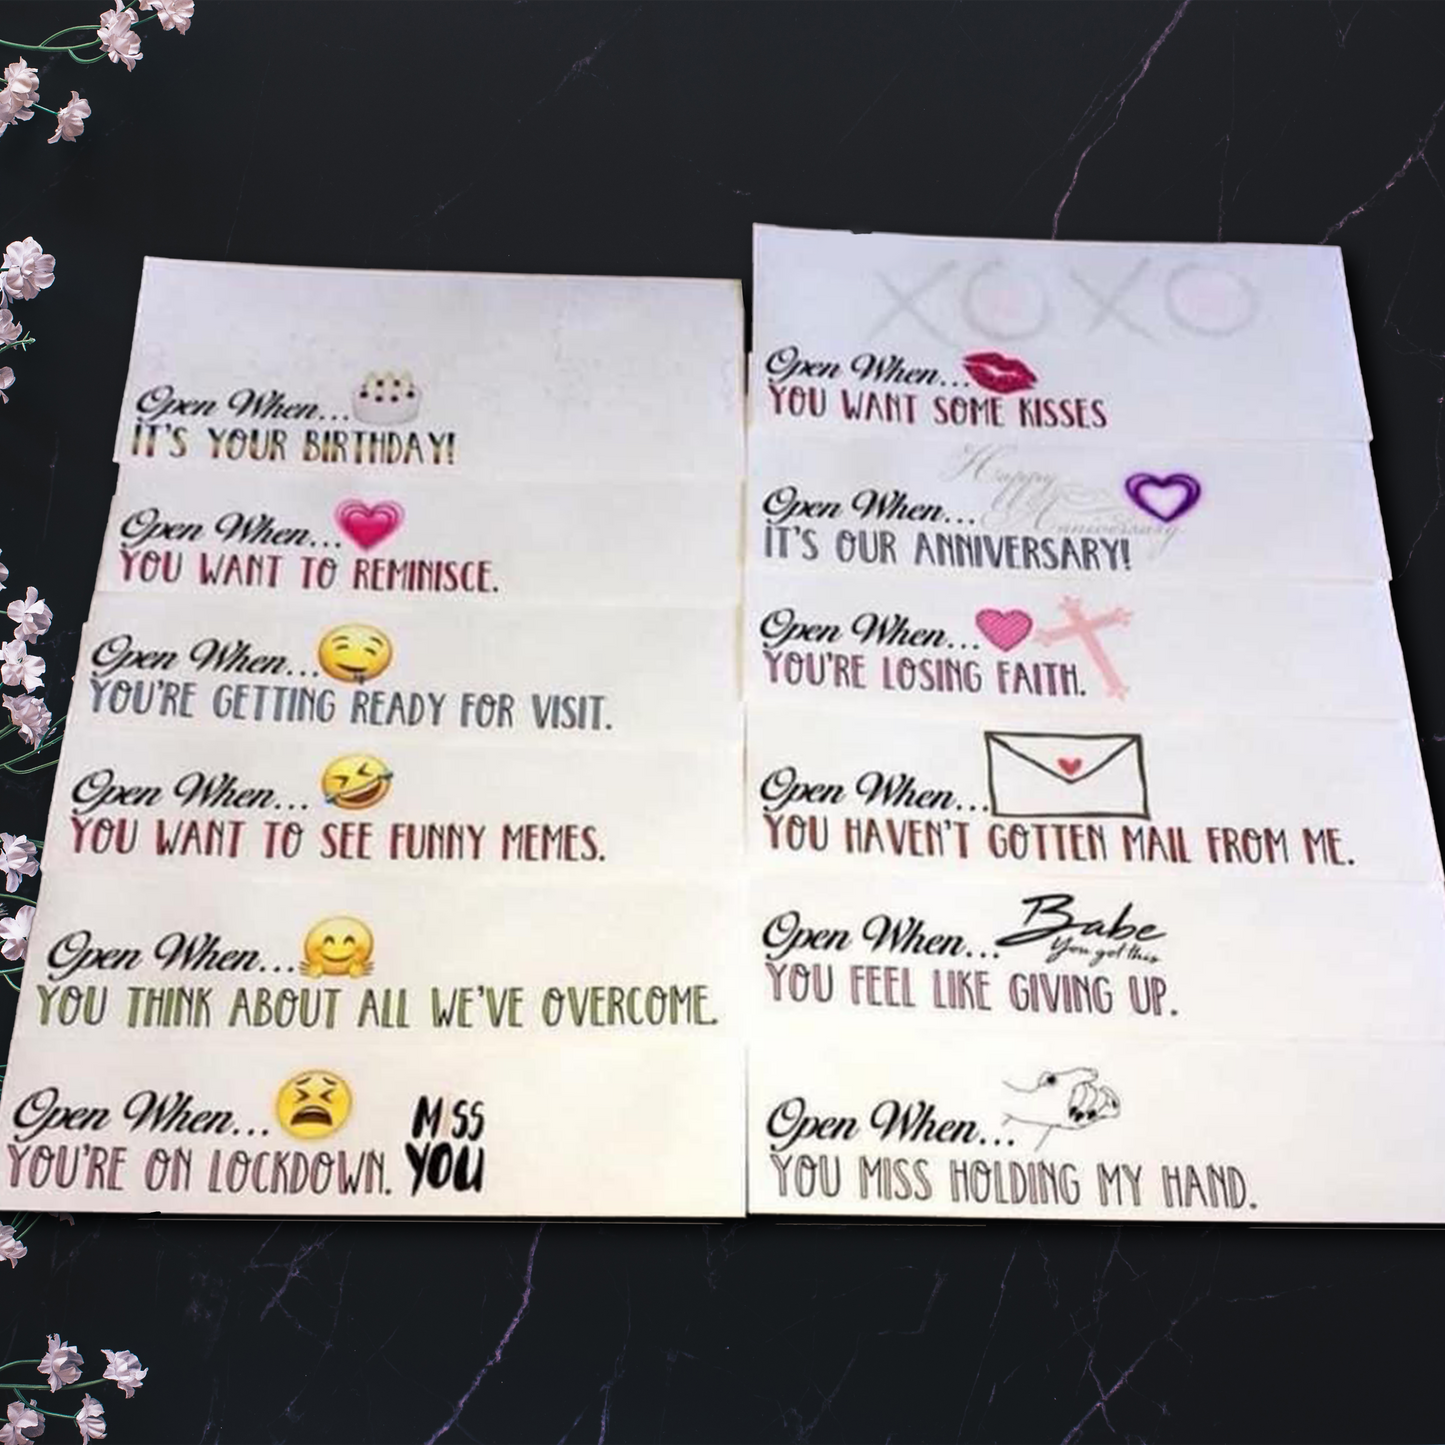 Open When...
IT'S YOUR BIRTHDAY!
Open When...
YOU WANT TO REMINISCE.
Open When...
YOU'RE GETTING READY FOR VISIT.
Open When...
YOU WANT TO SEE FUNNY MEMES.
Open When...
YOU THINK ABOUT ALL WE'VE OVERCOME.
Open When...
YOU'RE ON LOCKDOWN.
MISS
YOU
XOXO
Open When...
YOU WANT SOME KISSES
Happy
Anniversary
Open When...
IT'S OUR ANNIVERSARY!
Open When...
YOU'RE LOSING FAITH.
Open When...
YOU HAVEN'T GOTTEN MAIL FROM ME.
Open When...
Babe
You got this
YOU FEEL LIKE GIVING UP.
Open When...
YOU MISS HOLDING MY HAND.